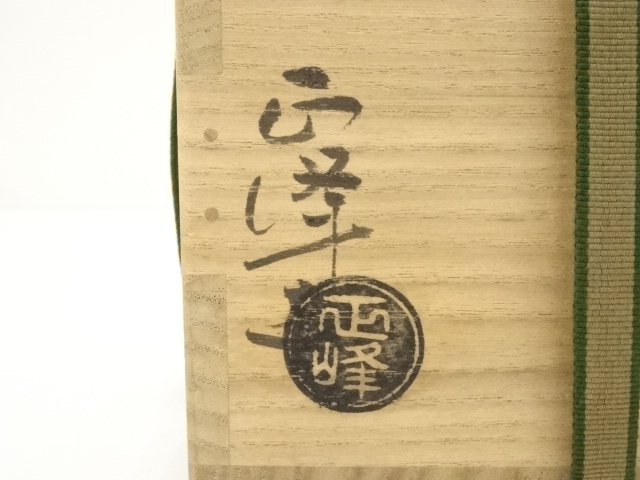 正峰
正峰